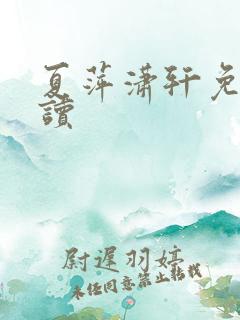 夏萍潇轩免
读
尉遲羽婷
未经同意禁止转载